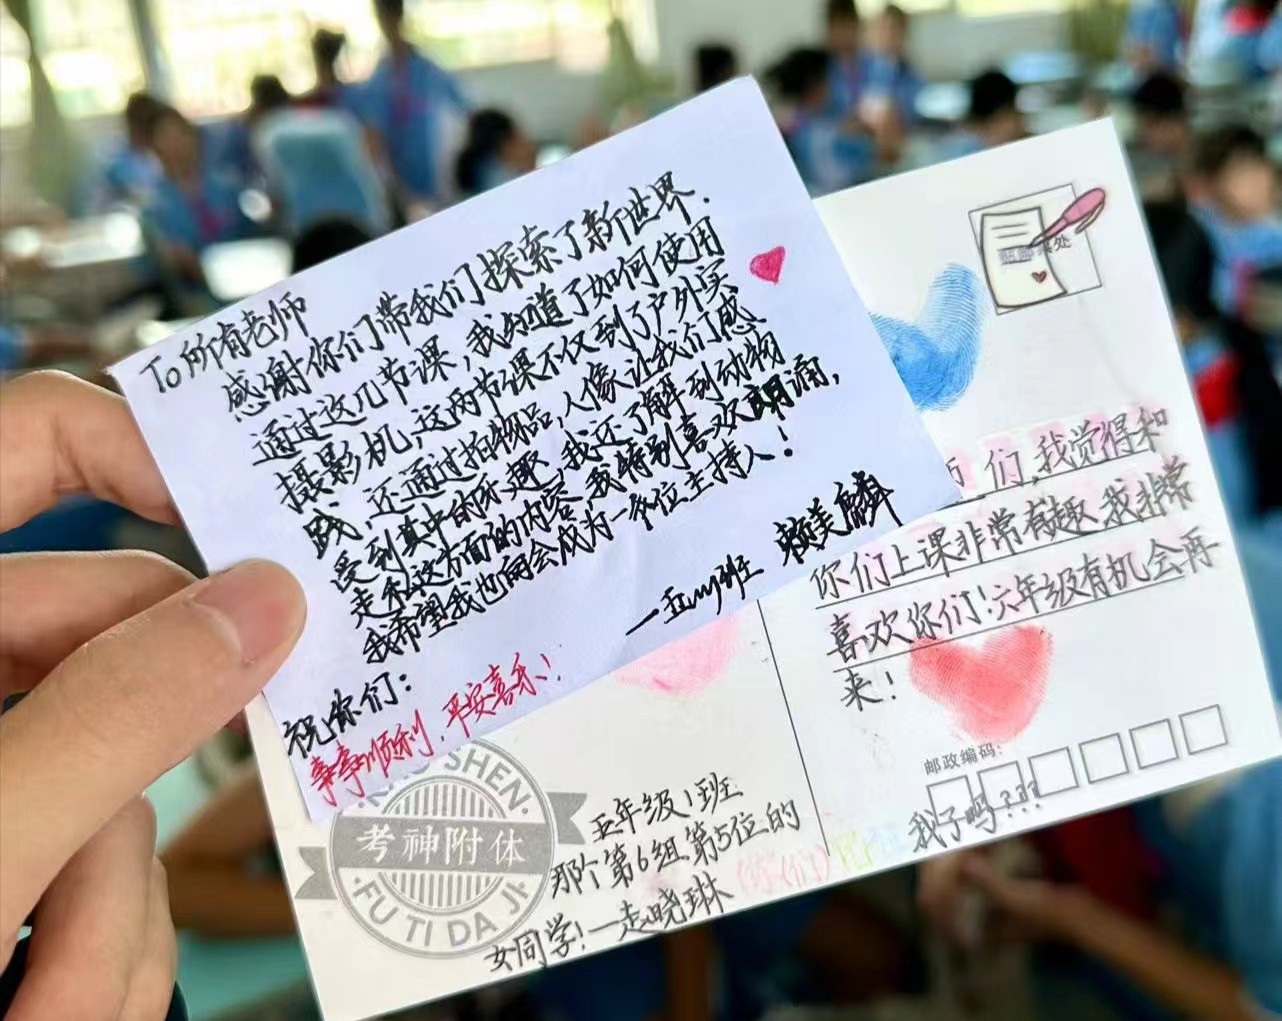 To 所有老师
感谢你们带我们探索了新世界.
通过这几节课,我知道了如何使用
摄影机,这两节课不仅到了户外实
践,还通过拍物品,人像让我们感
受到其中的乐趣,我还了解到动物
走私这方面的内容,我特别喜欢
我希望我也会成为一位主持人!
一五(1)班 赖美麟
祝你们:
事事顺利,平安喜乐!
们,我觉得和
你们上课非常有趣,我非常
喜欢你们!六年级有机会再
来!
邮政编码:
我了吗???
SHEN
考神附体
FU TI DA JI
五年级1班
那个第6组第5位的
女同学!一赵晓琳
(你们)